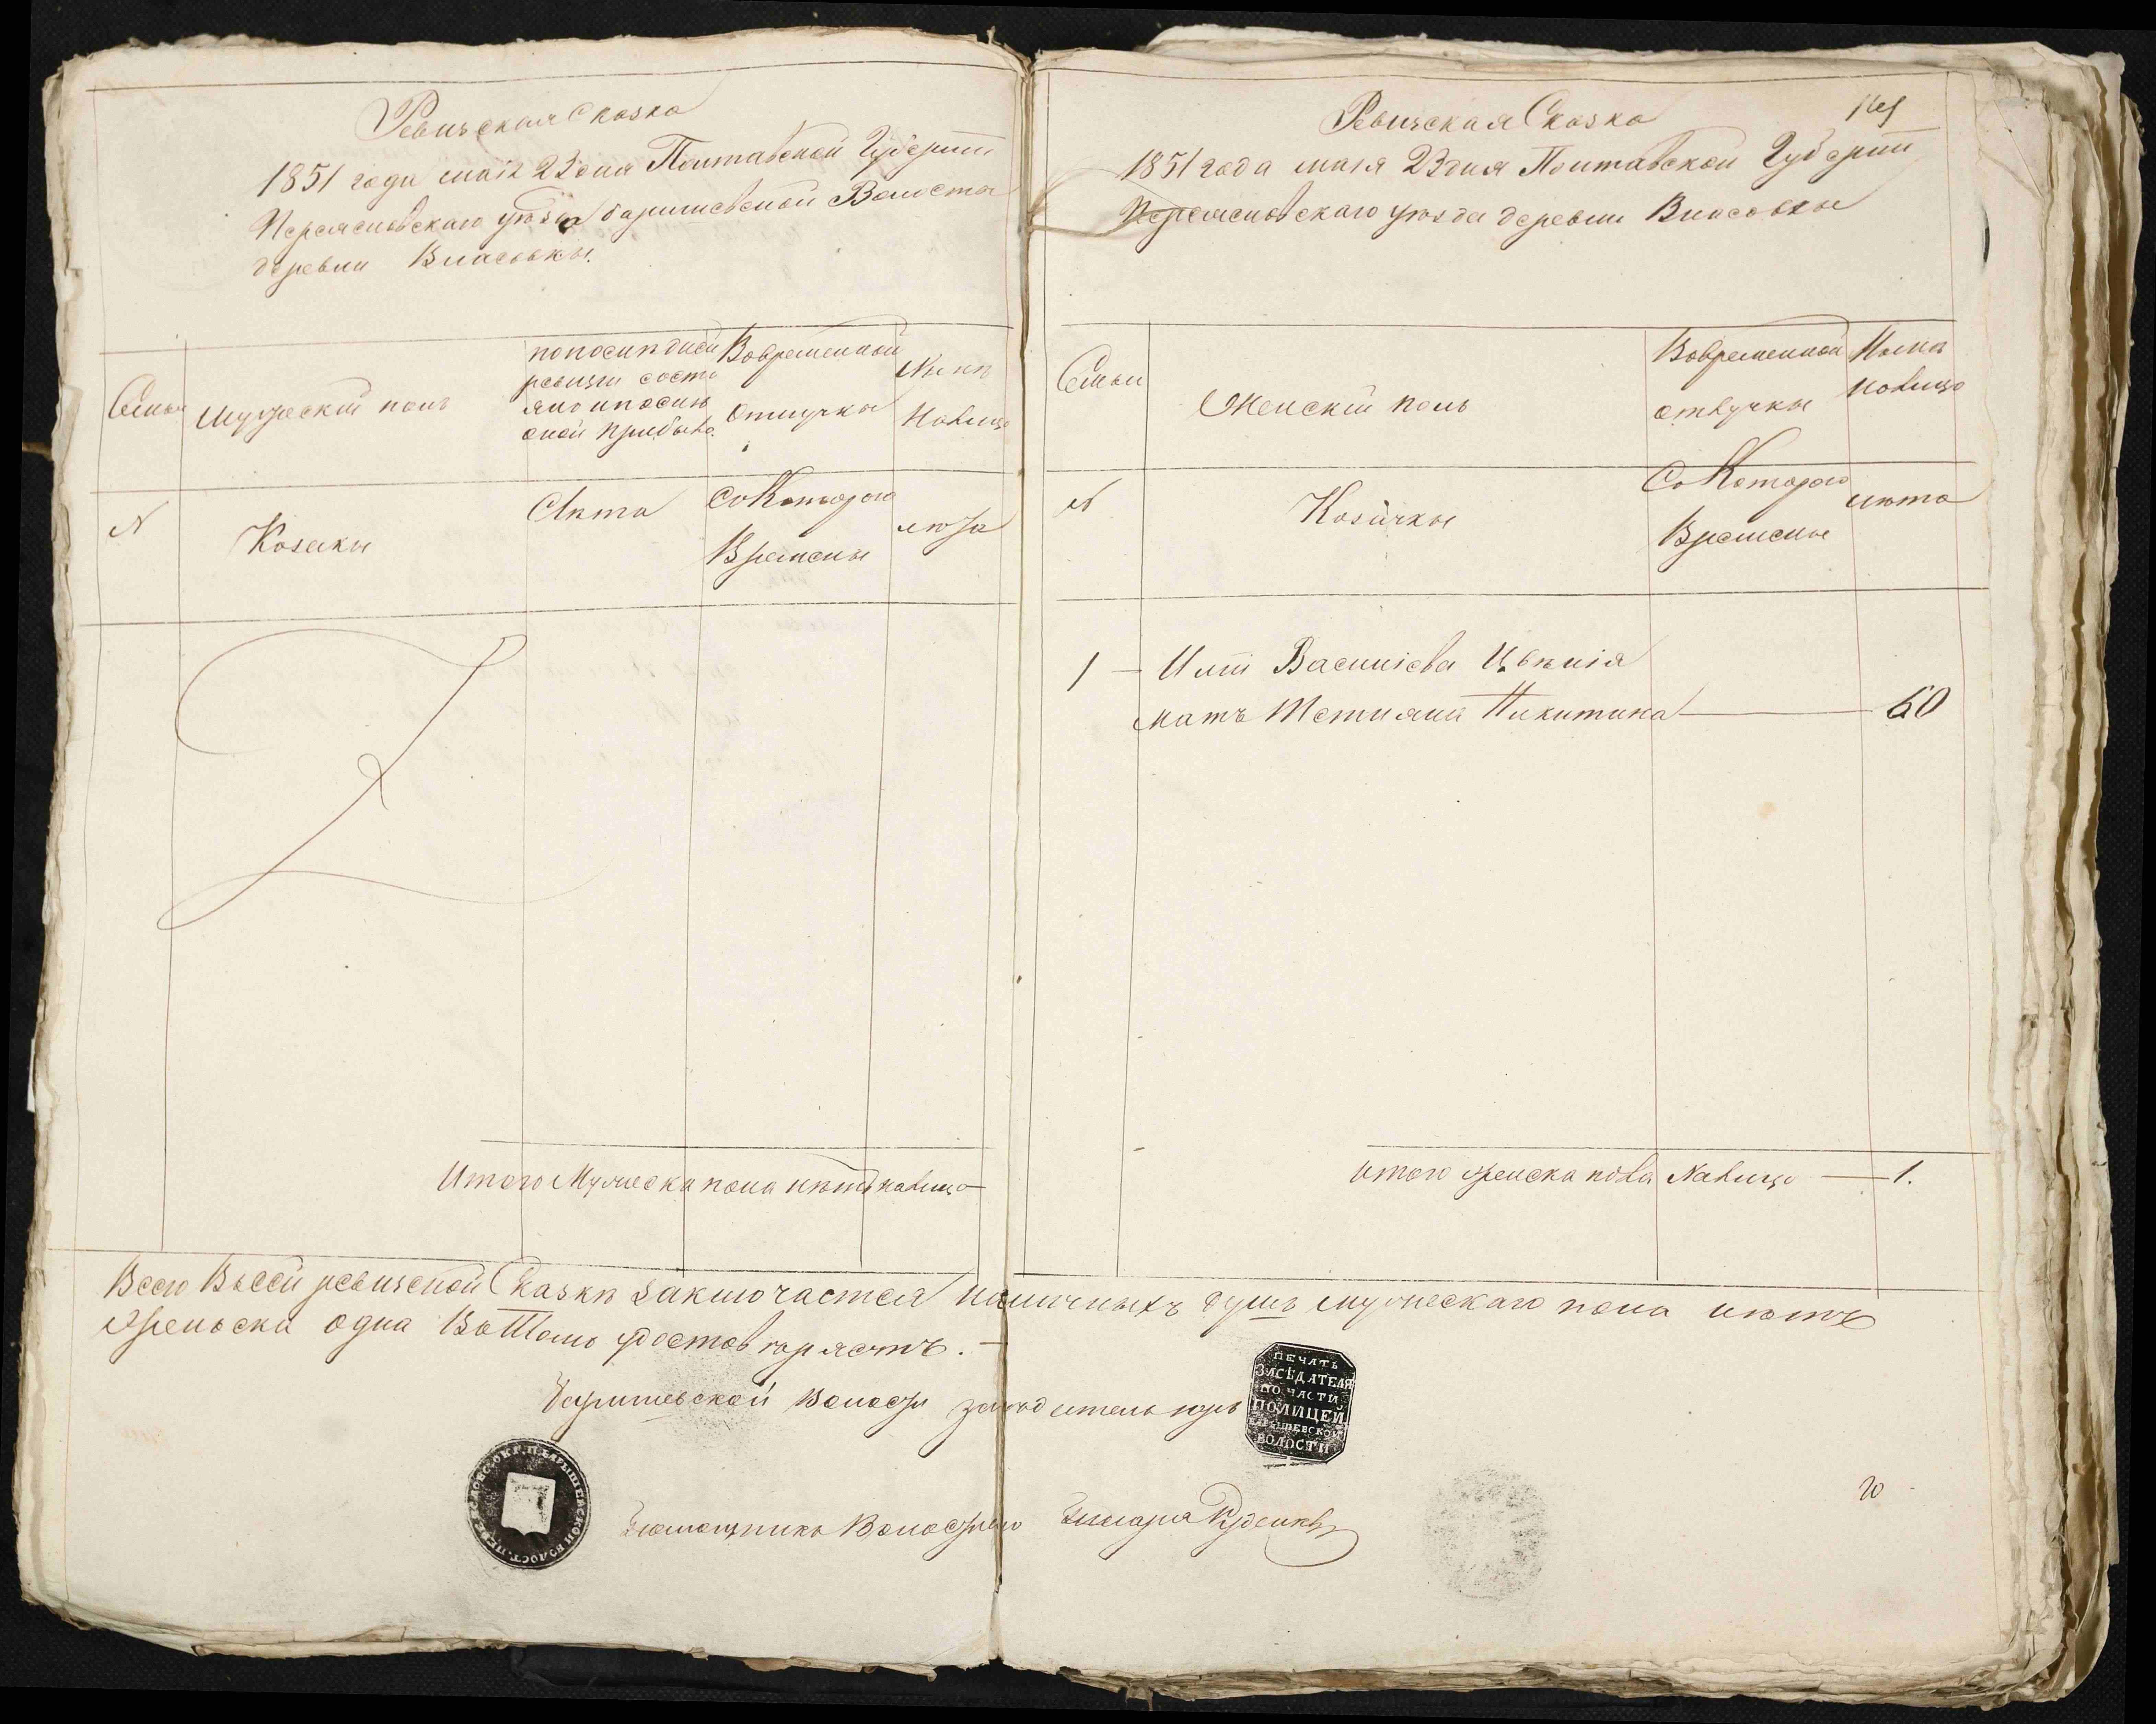 Ревизская Сказка
1851 года мая 23 дня Полтавской Губернии
Переясловского уезда барышевской Волости
деревни Власовки.
Семьи
мужеский полъ
по последней
ревизии состо
яло и после
оной прибыло
Вовременной
Отлучки
Ныне
Налицо
N
Козаки
Лета
Съ Которого
Времены
лета
Итого Мужеска пола нетъ налицо
Ревизская Сказка
1851 года мая 23 дня Полтавской Губернии
Переясловского уезда деревни Власовки
Семьи
Женский полъ
Вовременной
отлучки
Ныне
налицо
N
Козачки
Съ Которого
Времены
лета
1 — Василиева
мать Тетияна Никитина — 60
итого женска пола Налицо — 1.
Всего Въсей ревизской Сказки заключается наличныхъ душъ мужескаго пола нетъ
Женьска одна Въ Томъ
Барышевской Волости
ПЕЧАТЬ
ЗАСѢДАТЕЛЯ
ПО ЧАСТИ
ПОЛИЦЕЙ
БАРЫШЕВСКОЙ
ВОЛОСТИ
Волостного
20